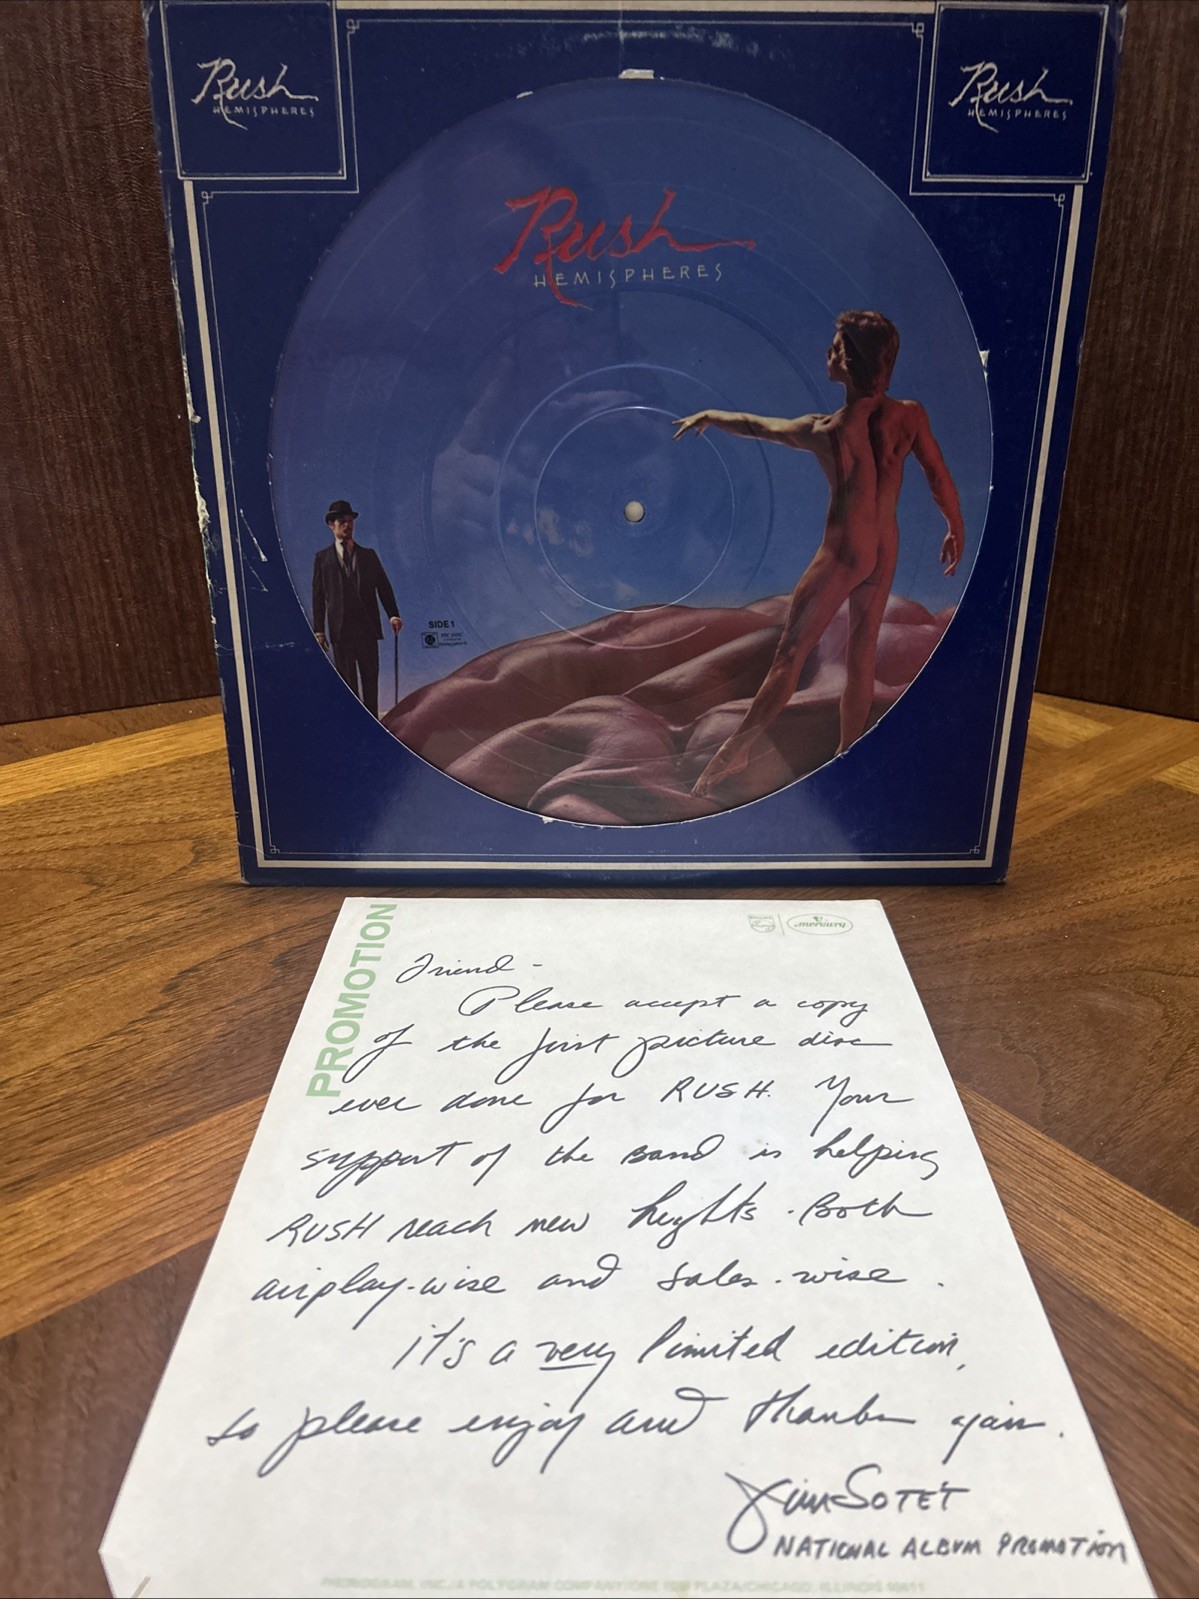 Rush
HEMISPHERES
Rush
HEMISPHERES
Rush
HEMISPHERES
SIDE 1
PROMOTION
PHILIPS
mercury
Friend -
Please accept a copy
of the first picture disc
ever done for RUSH. Your
support of the band is helping
RUSH reach new heights. Both
airplay-wise and sales-wise.
it's a very limited edition,
so please enjoy and thanks again.
Jim SOTET
NATIONAL ALBUM PROMOTION
PHONOGRAM, INC./A POLYGRAM COMPANY/ONE IBM PLAZA/CHICAGO, ILLINOIS 60611